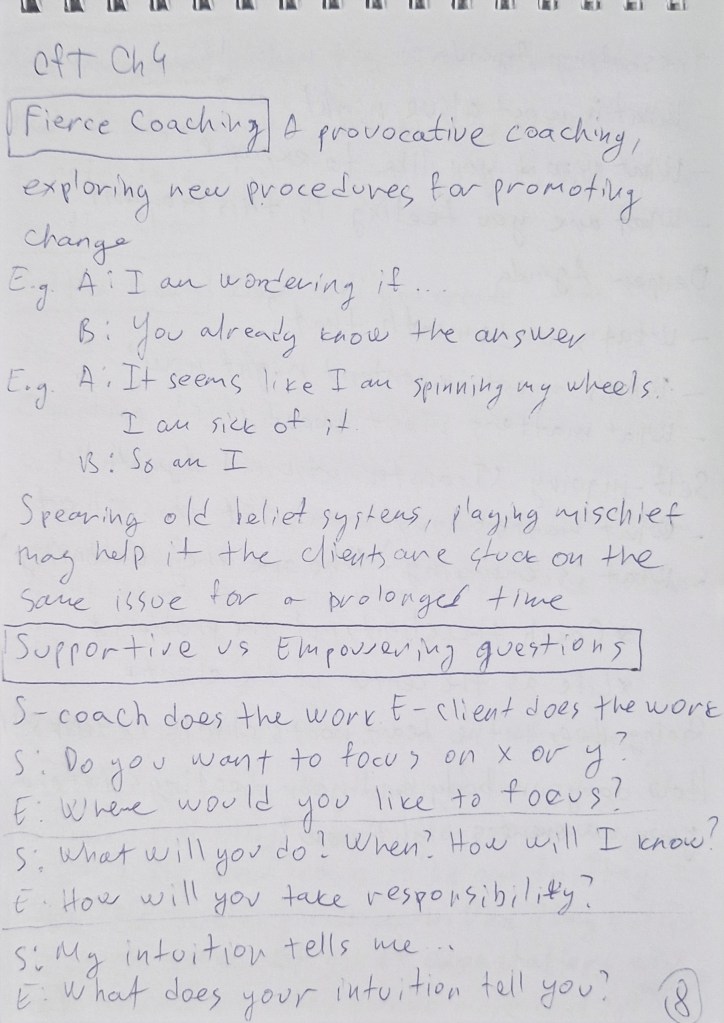 CfT Ch 4
Fierce Coaching A provocative coaching,
exploring new procedures for promoting
change
E.g. A: I am wondering if...
B: You already know the answer
E.g. A: It seems like I am spinning my wheels.
I am sick of it.
B: So am I
Spearing old belief systems, playing mischief
may help if the clients are stuck on the
same issue for a prolonged time
Supportive vs Empowering questions
S-coach does the work E-client does the work
S: Do you want to focus on x or y?
E: Where would you like to focus?
S: What will you do? When? How will I know?
E: How will you take responsibility?
S: My intuition tells me...
E: What does your intuition tell you?
8